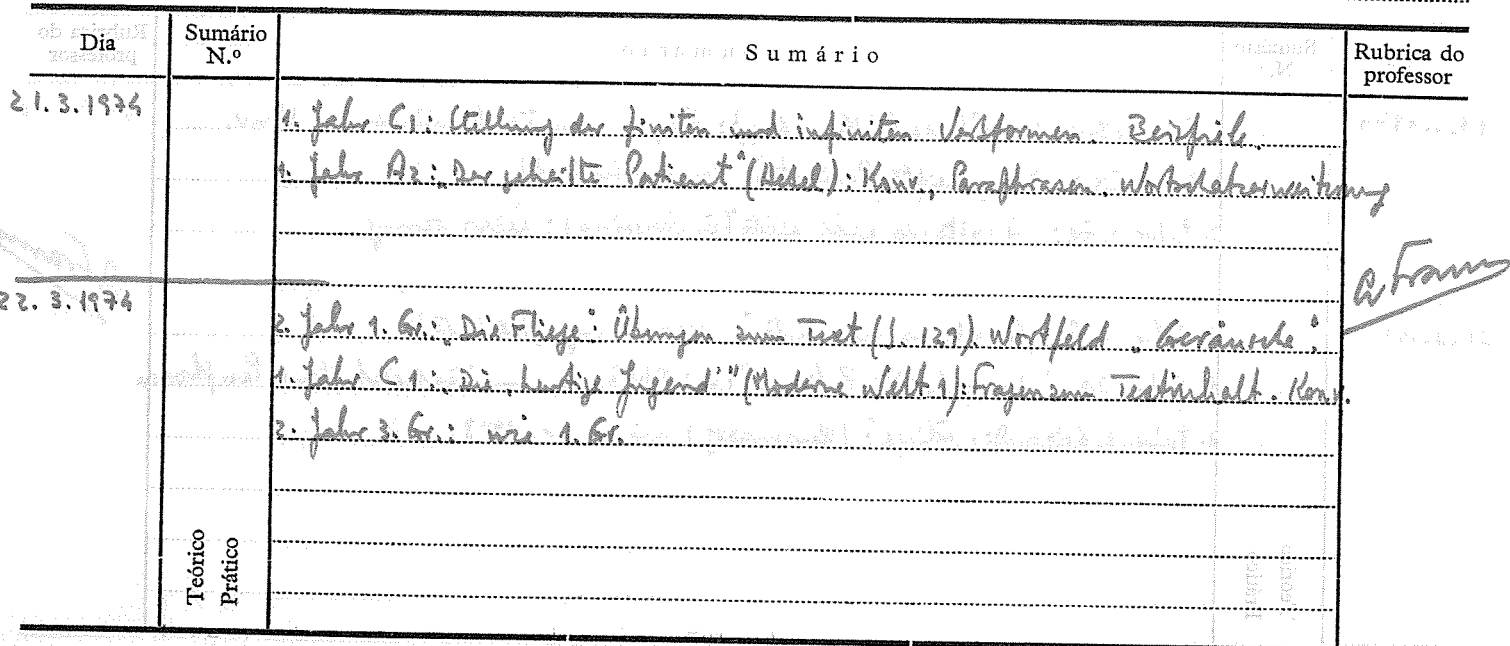 Dia Sumário N.º Sumário Rubrica do professor
21.3.1974
1. Jahr C1: Stellung der finiten und infiniten Verbformen. Beispiele.
1. Jahr A2: „Der geheilte Patient“ (Hebel): Konv., Paraphrasen, Wortschatzerweiterung
22.3.1974
2. Jahr 1. Gr.: „Die Fliege“: Übungen zum Text (S. 129). Wortfeld „Geräusche“.
1. Jahr C1: Die „heutige Jugend“ (Moderne Welt 1): Fragen zum Textinhalt. Konv.
2. Jahr 3. Gr.: wie 1. Gr.
Teórico
Prático